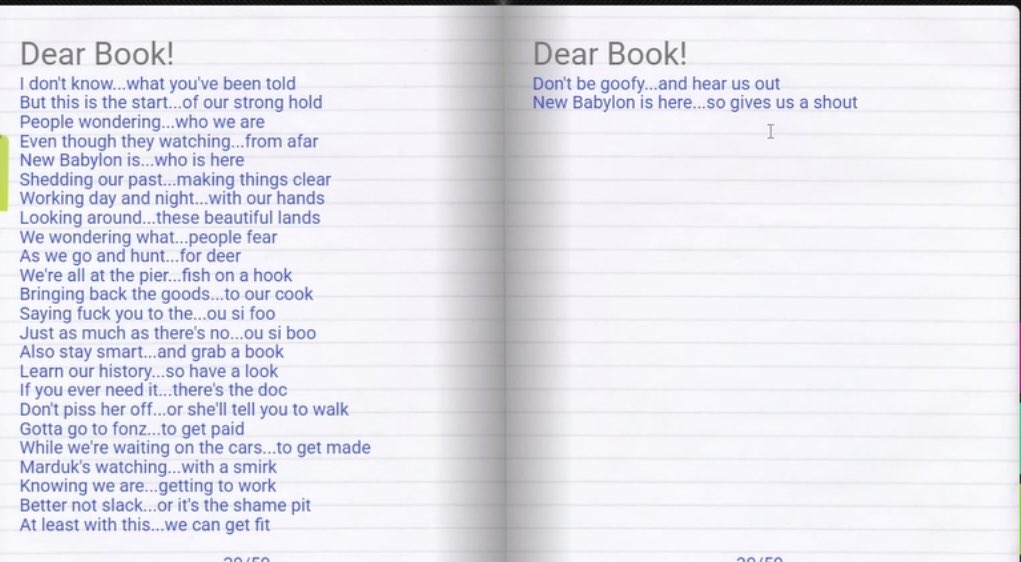 Dear Book!
I don't know...what you've been told
But this is the start...of our strong hold
People wondering...who we are
Even though they watching...from afar
New Babylon is...who is here
Shedding our past...making things clear
Working day and night...with our hands
Looking around...these beautiful lands
We wondering what...people fear
As we go and hunt...for deer
We're all at the pier...fish on a hook
Bringing back the goods...to our cook
Saying fuck you to the...ou si foo
Just as much as there's no...ou si boo
Also stay smart...and grab a book
Learn our history...so have a look
If you ever need it...there's the doc
Don't piss her off...or she'll tell you to walk
Gotta go to fonz...to get paid
While we're waiting on the cars...to get made
Marduk's watching...with a smirk
Knowing we are...getting to work
Better not slack...or it's the shame pit
At least with this...we can get fit
Dear Book!
Don't be goofy...and hear us out
New Babylon is here...so gives us a shout